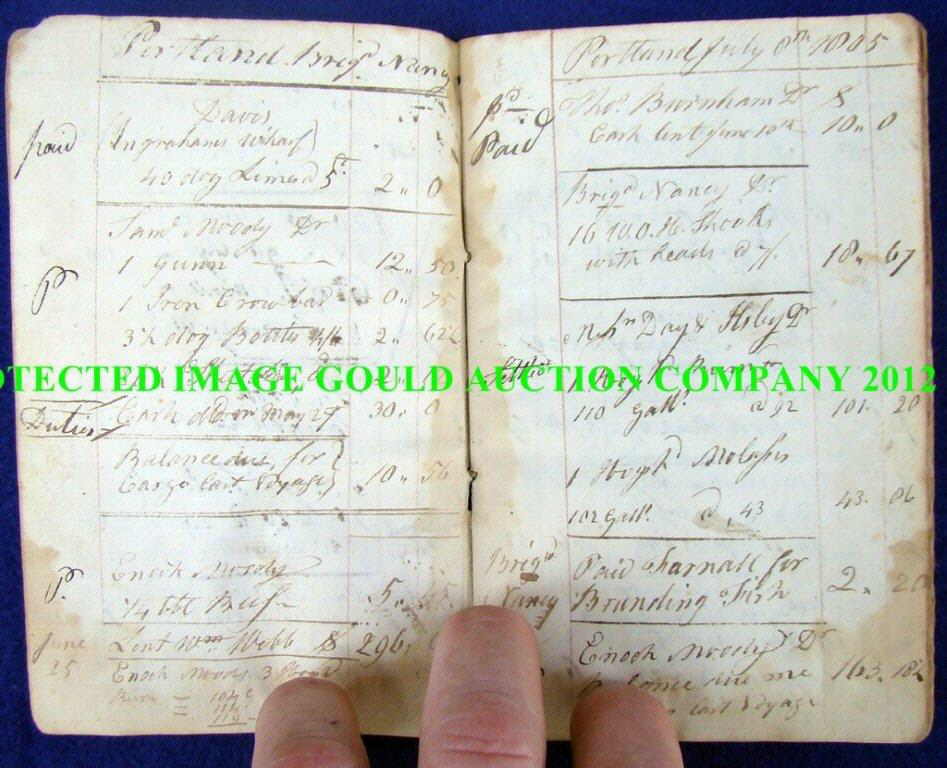 Portland Brigd Nancy
paid
Davis
(Ingrahams wharf)
40 dog Limes @ 5ct. 2" 0
Saml Moody Dr
P
1 Gunn 12" 50
1 Iron Crowbar 0" 75
3½ dog Bottles 2" 62½
Duties
Cash May 27 30" 0
Balance due, for
Cargo last Voyage} 10" 56
P.
Enoch Moody
¼ bbl Beef 5"
June
25
Lent Wm Webb $ 296"
Enoch Moody 3
Rum
Portland July 8th 1805
pd
Paid
Thos. Burnham Dr $
Cash lent June 10th 10" 0
Brigd Nancy Dr.
16 W.O.H. Shooks
with heads @ 7/. 18" 67
Day & Ilsley Dr
Settled
110 Galls. @ 92 101. 20
1 Hogsd Molasses
102 Galls. @ ,43 43. 86
Brigd
Nancy
Paid Farnall for
Branding Fish 2" 20
Enoch Moody Dr
Balance due me 163. 18½
last Voyage
PROTECTED IMAGE GOULD AUCTION COMPANY 2012